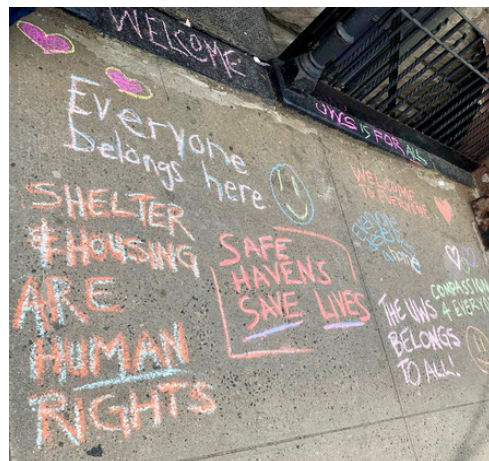 WELCOME
UWS IS FOR ALL
Everyone
belongs here
SHELTER
& HOUSING
ARE
HUMAN
RIGHTS
SAFE
HAVENS
SAVE LIVES
WELCOME
TO EVERYONE
COMPASSION
4 EVERYO
THE UWS
BELONGS
TO ALL!